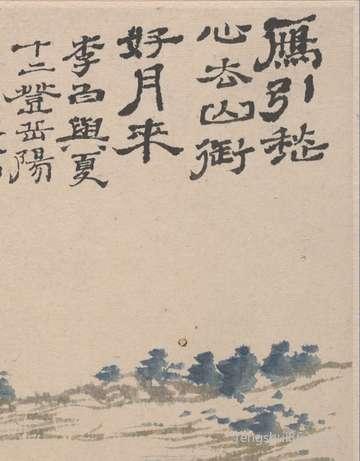 鴈引愁
心去山銜
好月來
李白與夏
十二登岳陽